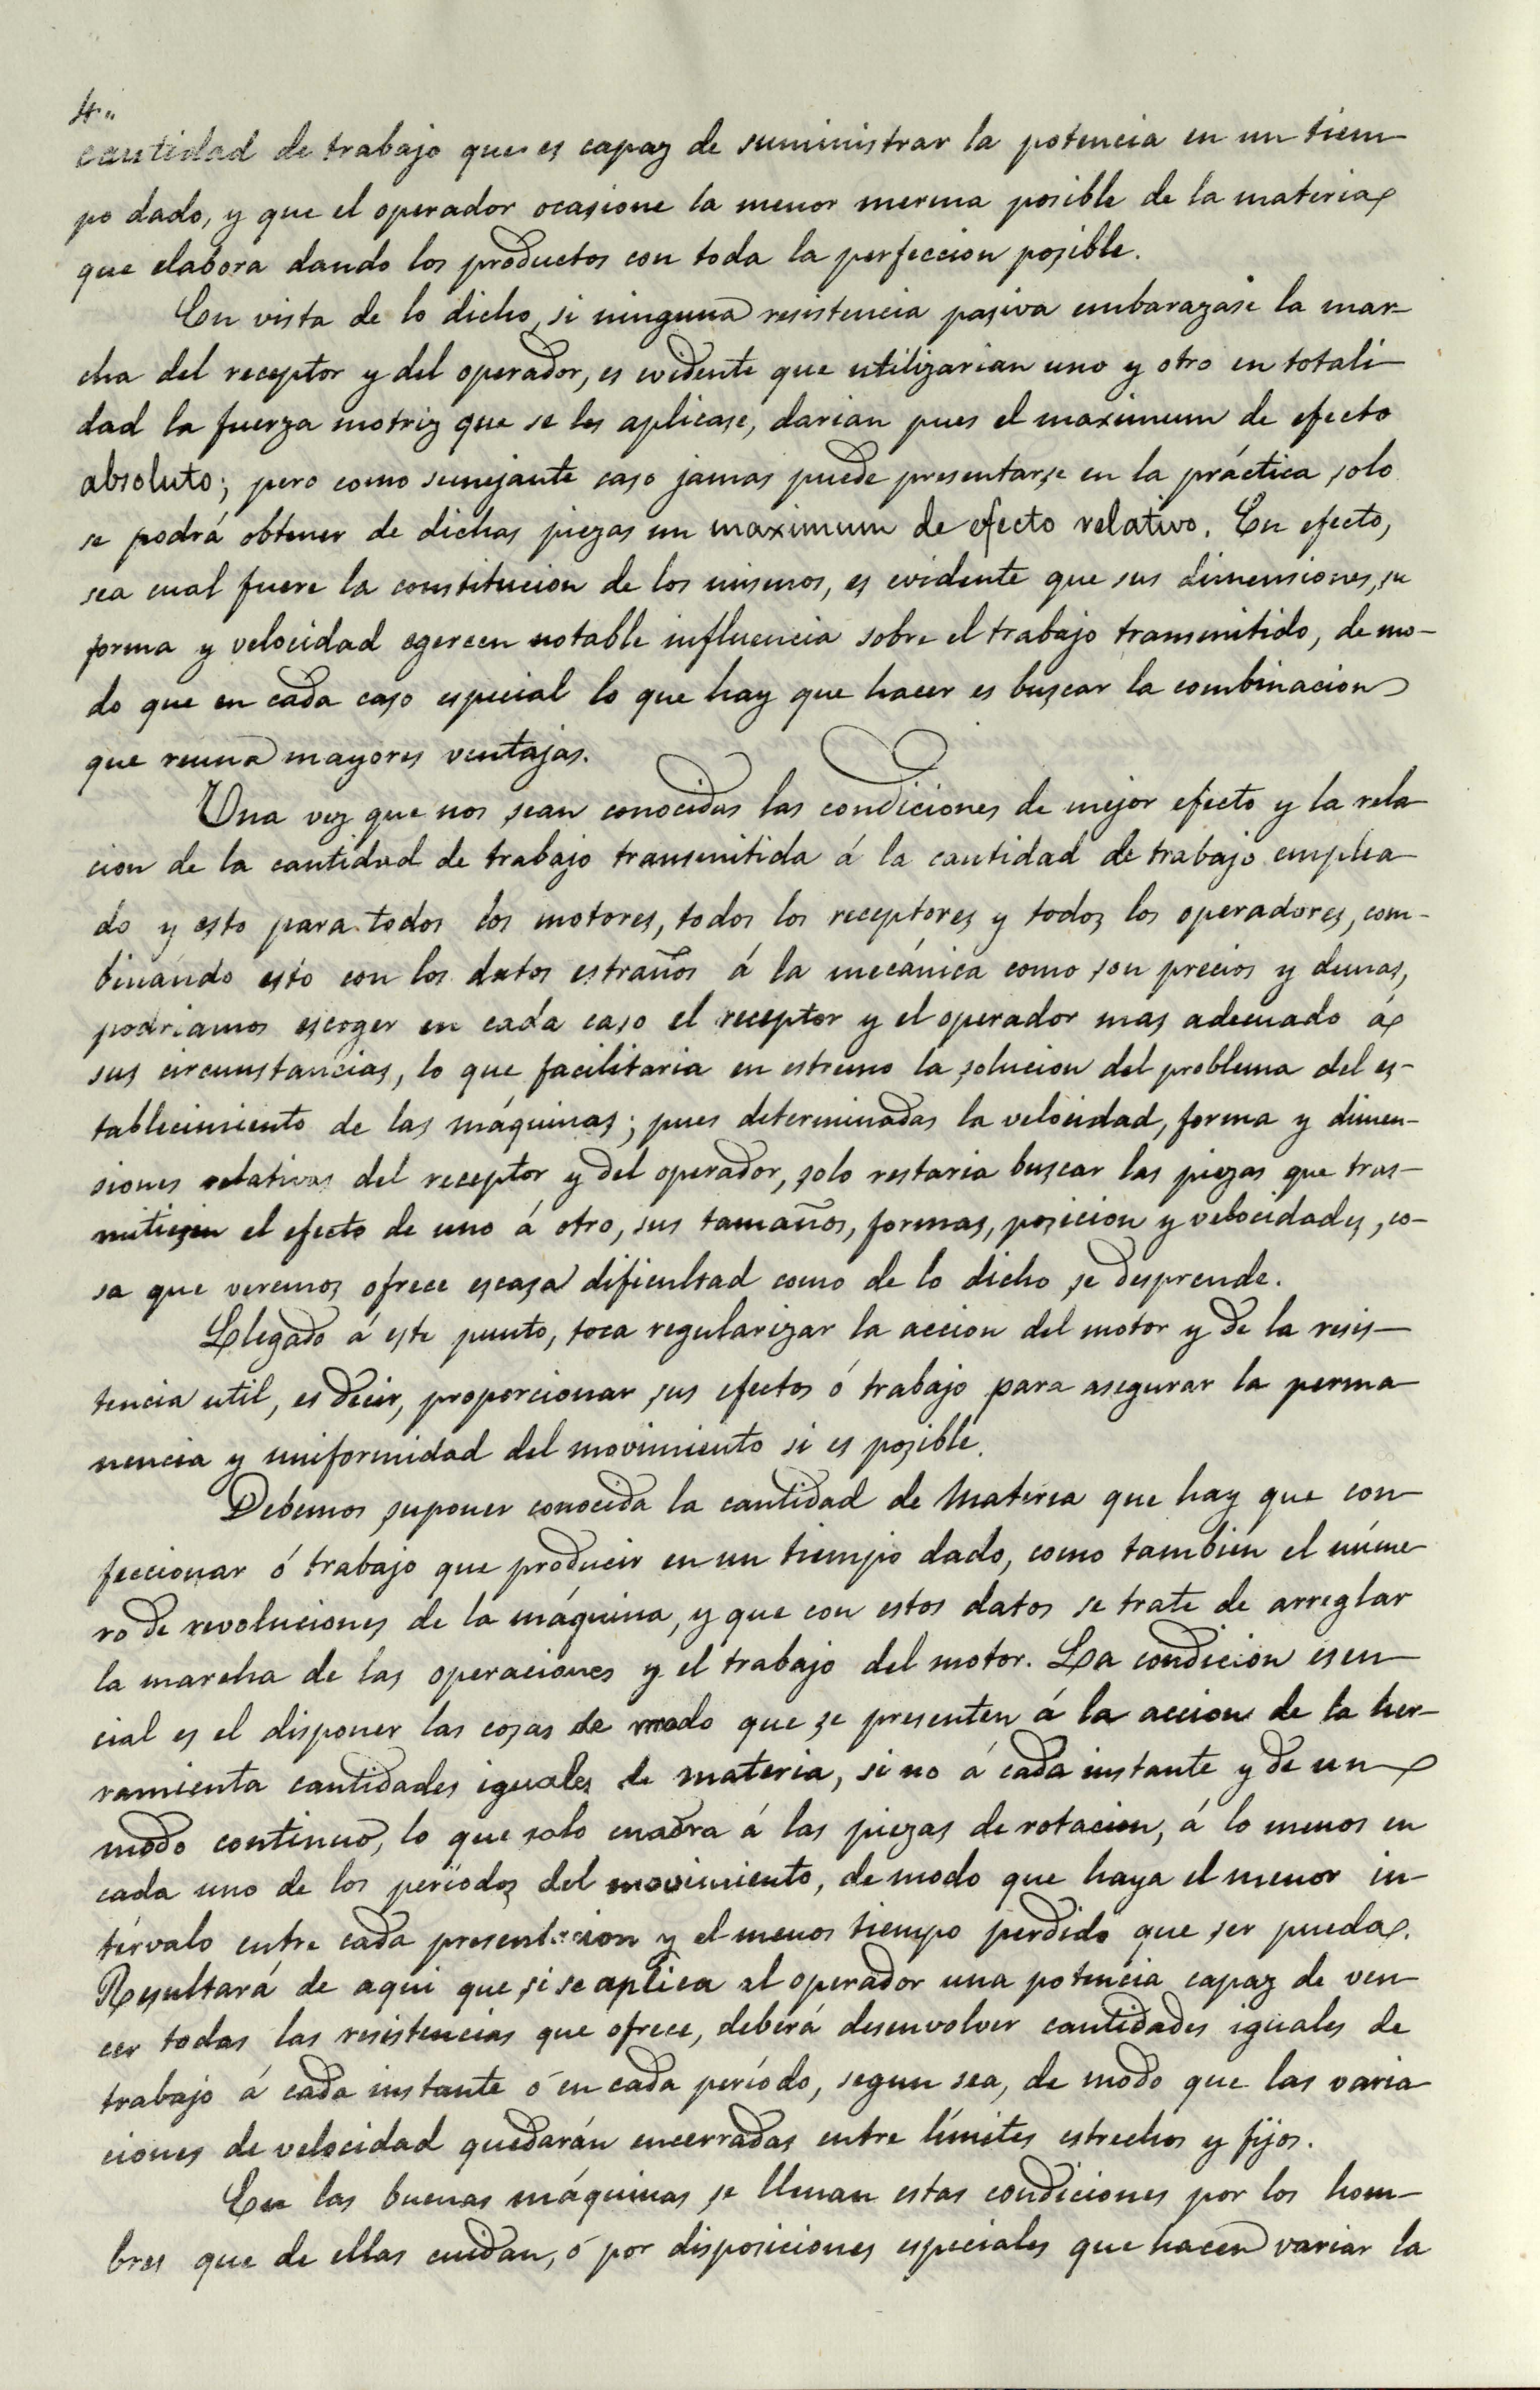 4.,,
cantidad de trabajo que es capaz de suministrar la potencia en un tiem-
po dado, y que el operador ocasione la menor merma posible de la materia
que elabora dando los productos con toda la perfeccion posible.
En vista de lo dicho, si ninguna resistencia pasiva embarazase la mar-
cha del receptor y del operador, es evidente que utilizarian uno y otro en totali-
dad la fuerza motriz que se les aplicase, darian pues el maximum de efecto
absoluto; pero como semejante caso jamas puede presentarse en la práctica, solo
se podrá obtener de dichas piezas un maximum de efecto relativo. En efecto,
sea cual fuere la constitucion de los mismos, es evidente que sus dimensiones, su
forma y velocidad egercen notable influencia sobre el trabajo transmitido, de mo-
do que en cada caso especial lo que hay que hacer es buscar la combinacion
que reuna mayores ventajas.
Una vez que nos sean conocidas las condiciones de mejor efecto y la rela-
cion de la cantidad de trabajo transmitida á la cantidad de trabajo emplea-
do y esto para todos los motores, todos los receptores y todos los operadores, com-
binando esto con los datos estraños á la mecánica como son precios y demas,
podriamos escoger en cada caso el receptor y el operador mas adecuado á
sus circunstancias, lo que facilitaria en estremo la solucion del problema del es-
tablecimiento de las máquinas; pues determinadas la velocidad, forma y dimen-
siones relativas del receptor y del operador, solo restaria buscar las piezas que tras-
mitiesen el efecto de uno á otro, sus tamaños, formas, posicion y velocidades, co-
sa que veremos ofrece escasa dificultad como de lo dicho se desprende.
Llegado á este punto, toca regularizar la accion del motor y de la resis-
tencia util, es decir, proporcionar sus efectos ó trabajo para asegurar la perma-
nencia y uniformidad del movimiento si es posible.
Debemos suponer conocida la cantidad de materia que hay que con-
feccionar ó trabajo que producir en un tiempo dado, como tambien el núme-
ro de revoluciones de la máquina, y que con estos datos se trate de arreglar
la marcha de las operaciones y el trabajo del motor. La condicion esen-
cial es el disponer las cosas de modo que se presenten á la accion de la her-
ramienta cantidades iguales de materia, si no á cada instante y de un
modo continuo, lo que solo cuadra á las piezas de rotacion, á lo menos en
cada uno de los períodos del movimiento, de modo que haya el menor in-
térvalo entre cada presentacion y el menos tiempo perdido que ser pueda.
Resultará de aqui que si se aplica al operador una potencia capaz de ven-
cer todas las resistencias que ofrece, deberá desenvolver cantidades iguales de
trabajo á cada instante ó en cada período, segun sea, de modo que las varia-
ciones de velocidad quedarán encerradas entre límites estrechos y fijos.
En las buenas máquinas se llenan estas condiciones por los hom-
bres que de ellas cuidan, ó por disposiciones especiales que hacen variar la